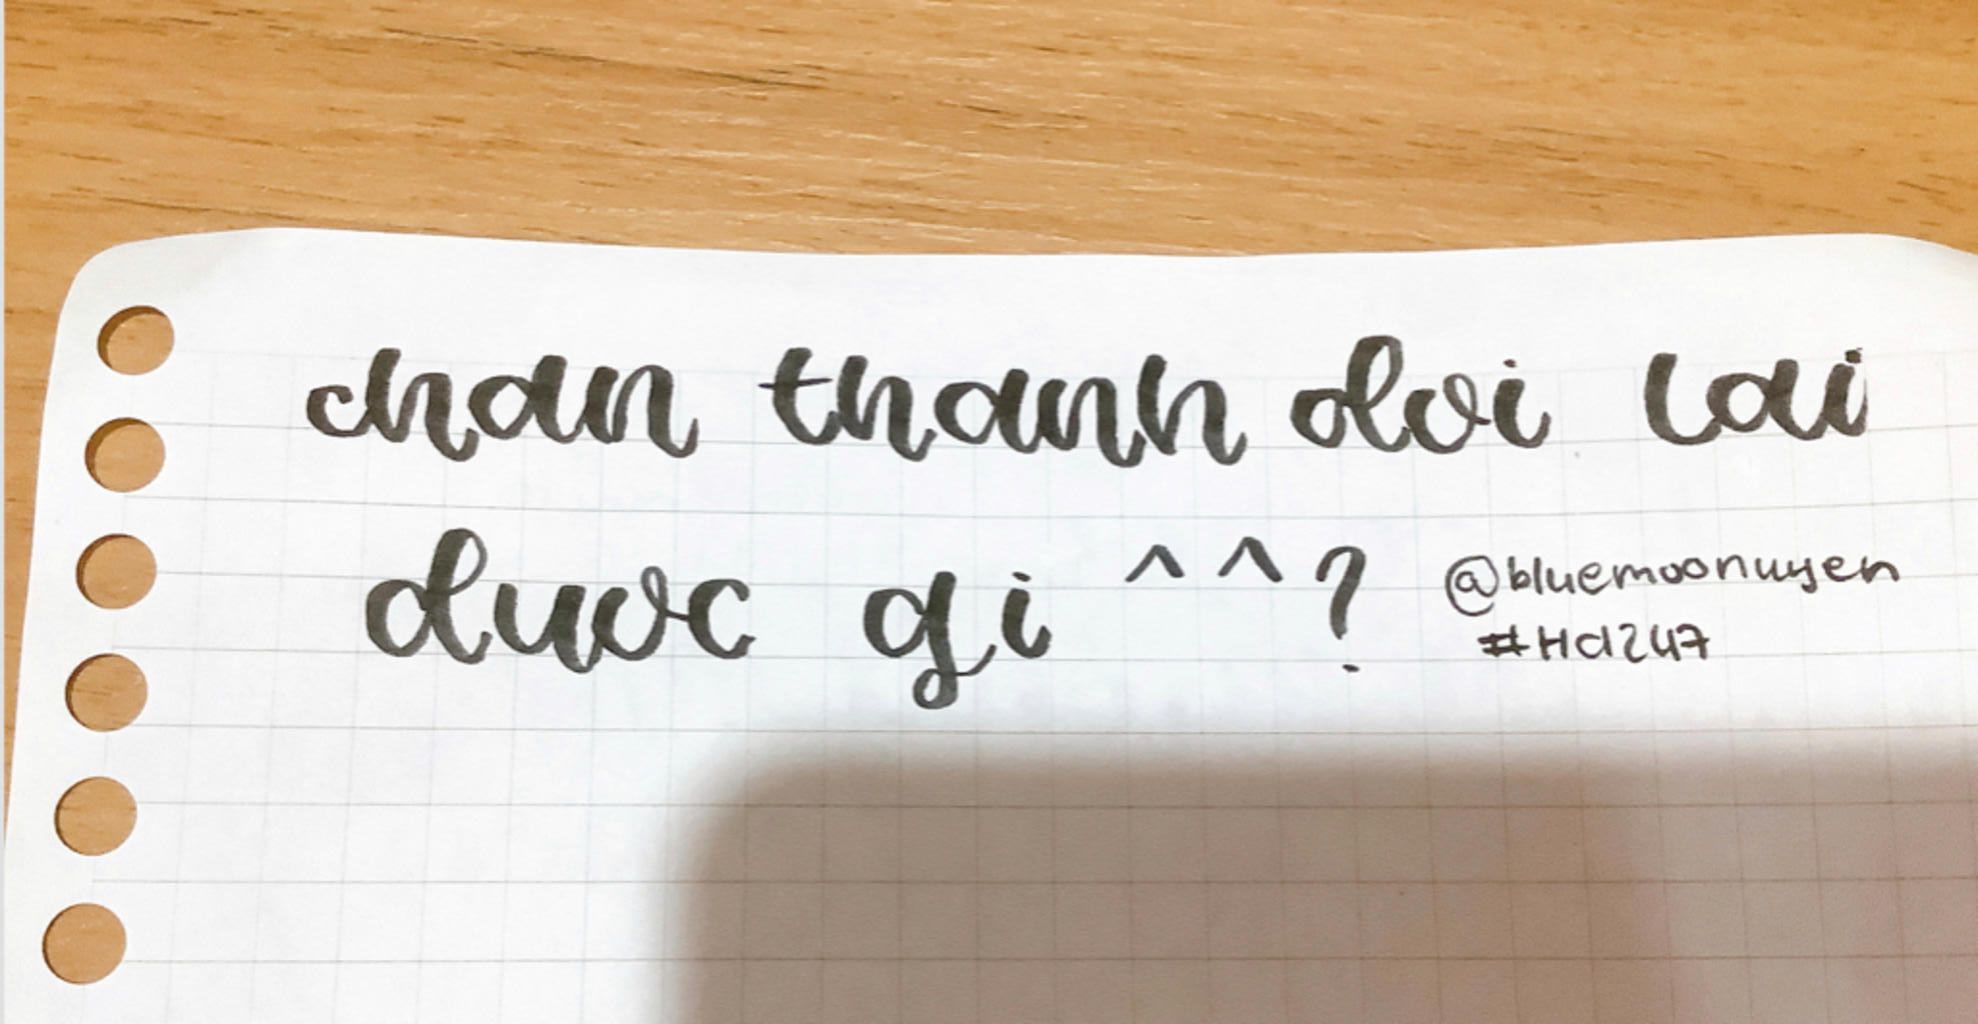 chan thanh dơi lai
dươc gi ^^?
@bluemoonuyen
#Hd247